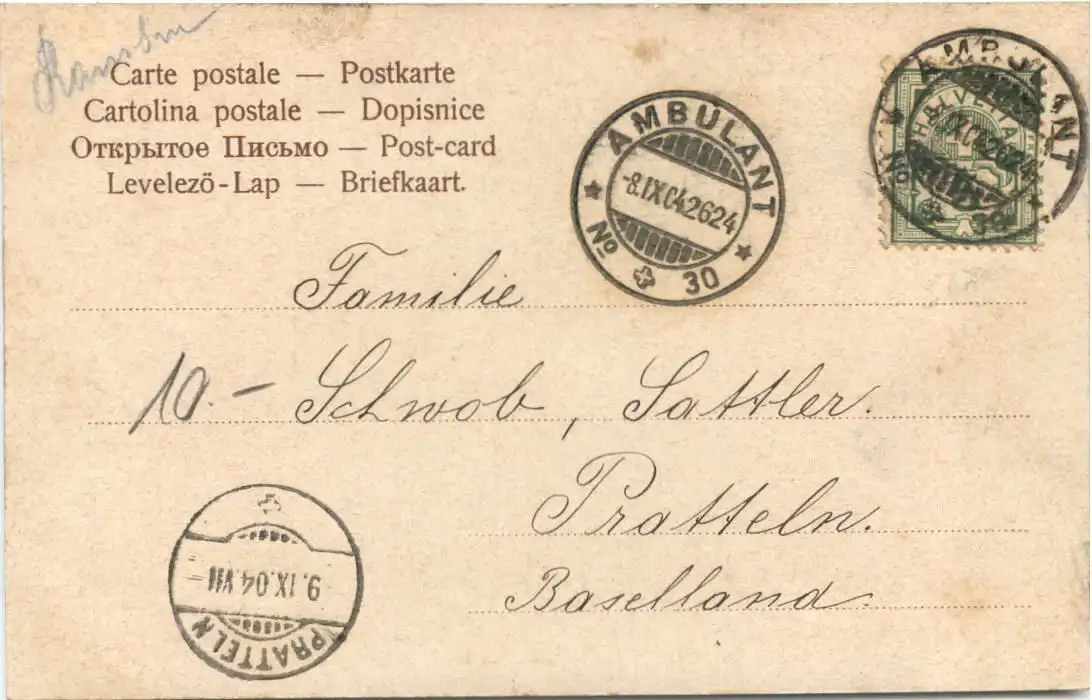 Carte postale — Postkarte
Cartolina postale — Dopisnice
Открытое Письмо — Post-card
Levelezö-Lap — Briefkaart.
AMBULANT
-8.IX.04 2624
No 30
AMBULANT
HELVETIA
IX.04 2624
No
Familie
10.- Schwob, Sattler.
Pratteln.
Baselland.
9.IX.04.VII
PRATTELN